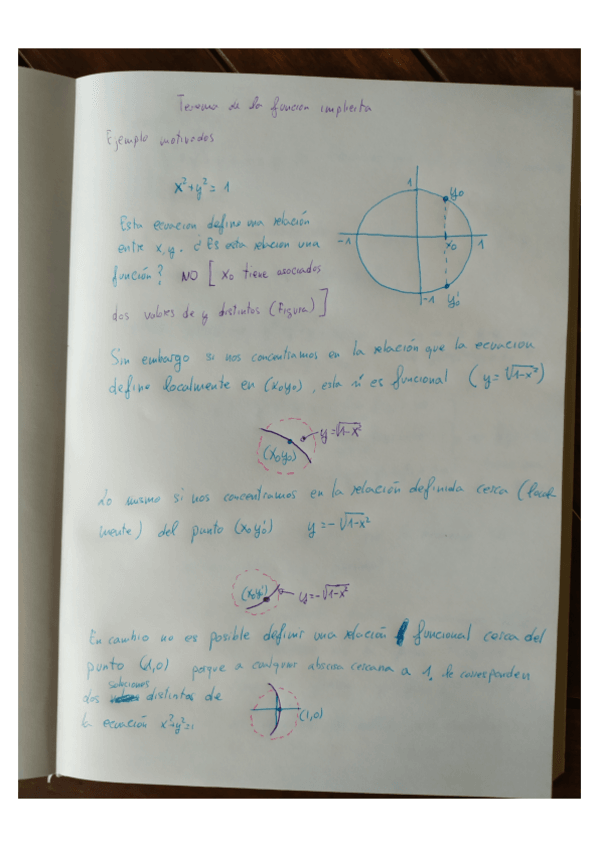 Teorema de la función implícita
Ejemplo motivador
x²+y²=1
1
y₀
-1
x₀
1
-1
y₀'
Esta ecuacion define una relación
entre x,y. ¿Es esta relacion una
función? NO [x₀ tiene asociados
dos valores de y distintos (Figura)]
Sin embargo si nos concentramos en la relación que la ecuacion
define localmente en (x₀y₀), esta sí es funcional (y=√1-x²)
y=√1-x²
(x₀y₀)
Lo mismo si nos concentramos en la relación definida cerca (local-
mente) del punto (x₀y₀') y=-√1-x²
(x₀y₀')
y=-√1-x²
En cambio no es posible definir una relación funcional cerca del
punto (1,0) porque a cualquier abscisa cercana a 1, le corresponden
soluciones
dos distintos de
la ecuación x²+y²=1
(1,0)